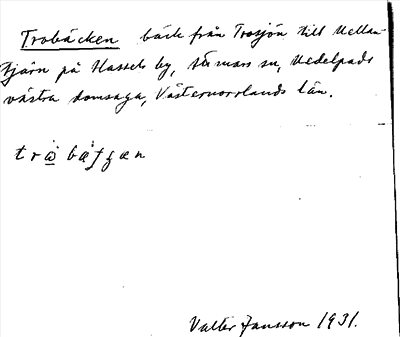 Trobäcken bäck från Trosjön till Mellan-
tjärn på Hassels by, Stöde sn, Medelpads
västra domsaga, Västernorrlands län.
Valter Jansson 1931.